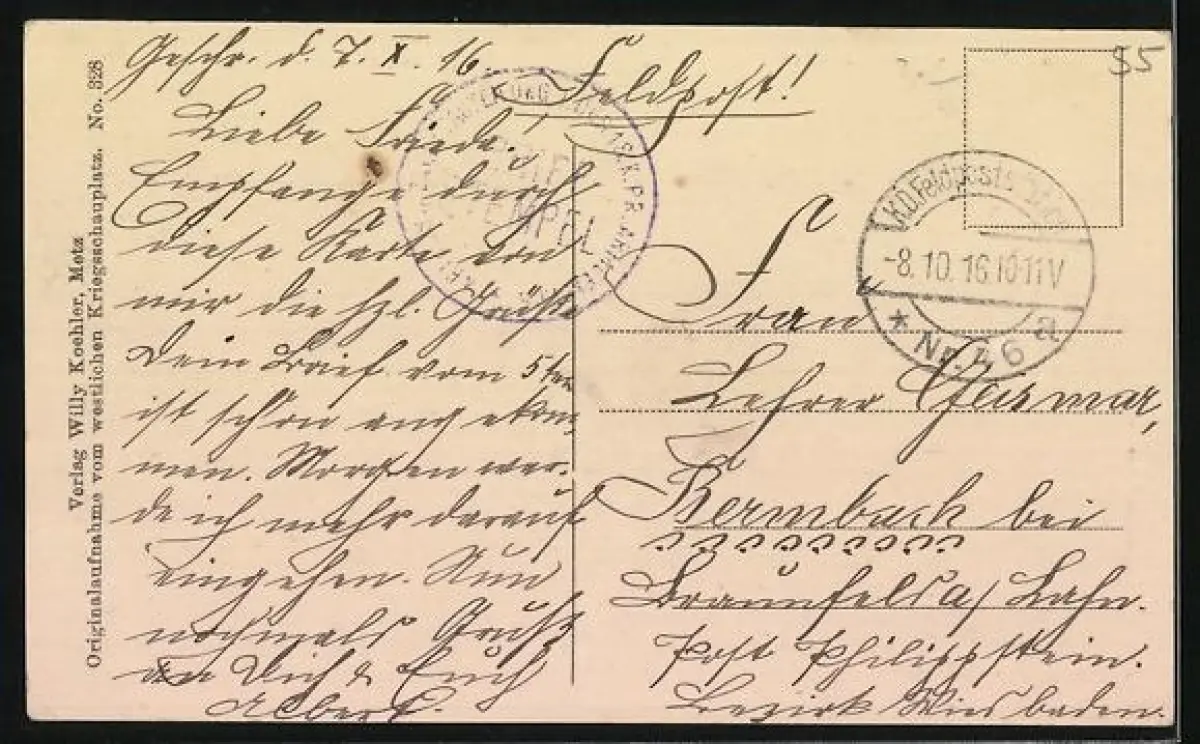 Geschr. d. 7. X. 16.
Feldpost!
Liebe Friede!
Empfange durch
diese Karte von
mir die hzl. Grüße
Dein Brief vom 5ten
ist schon angekom-
men. Morgen wer-
de ich mehr darauf
eingehen. Nun
nochmals Gruß
an Dich & Euch
Albert.
Verlag Willy Koehler, Metz
Originalaufnahme vom westlichen Kriegsschauplatz. No. 328
55
K.D. Feldpost
-8.10.16.10-11V
* Nr. 46 a
STEMPEL
Frau
Lehrer
Bermbach bei
Braunfels a/ Lahn.
Post Philippstein.
Bezirk Wiesbaden.